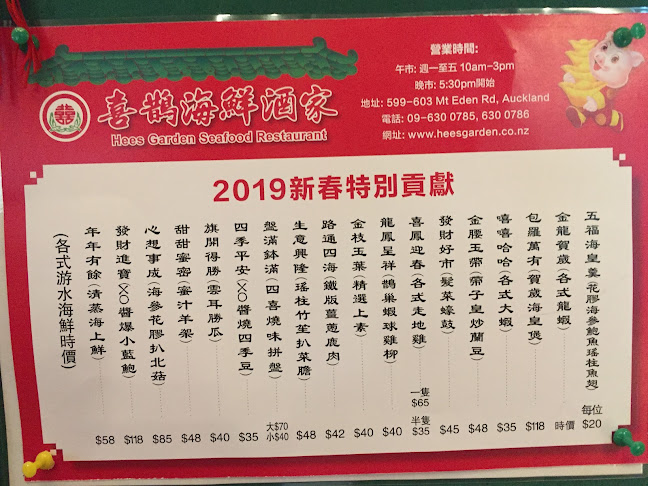 喜鵲海鮮酒家
Hees Garden Seafood Restaurant
營業時間:
午市: 週一至五 10am-3pm
晚市: 5:30pm開始
地址: 599-603 Mt Eden Rd, Auckland
電話: 09-630 0785, 630 0786
網址: www.heesgarden.co.nz
2019新春特別貢獻
五福海皇羹(花膠海參鮑魚瑤柱魚翅) 每位 $20
金龍賀歲(各式龍蝦) 時價
包羅萬有(賀歲海皇煲) $118
嘻嘻哈哈(各式大蝦) $35
金腰玉帶(帶子皇炒蘭豆) $48
發財好市(髮菜蠔豉) $45
喜鳳迎春(各式走地雞) 一隻 $65 半隻 $35
龍鳳呈祥(鵲巢蝦球雞柳) $40
金枝玉葉(精選上素) $40
路通四海(鐵版薑蔥鹿肉) $42
生意興隆(瑤柱竹笙扒菜膽) $48
盤滿鉢滿(四喜燒味拼盤) 大$70 小$40
四季平安(XO醬燒四季豆) $35
旗開得勝(雲耳勝瓜) $40
甜甜蜜蜜(蜜汁羊架) $48
心想事成(海參花膠扒北菇) $85
發財進寶(XO醬爆小藍鮑) $118
年年有餘(清蒸海上鮮) $58
(各式游水海鮮時價)